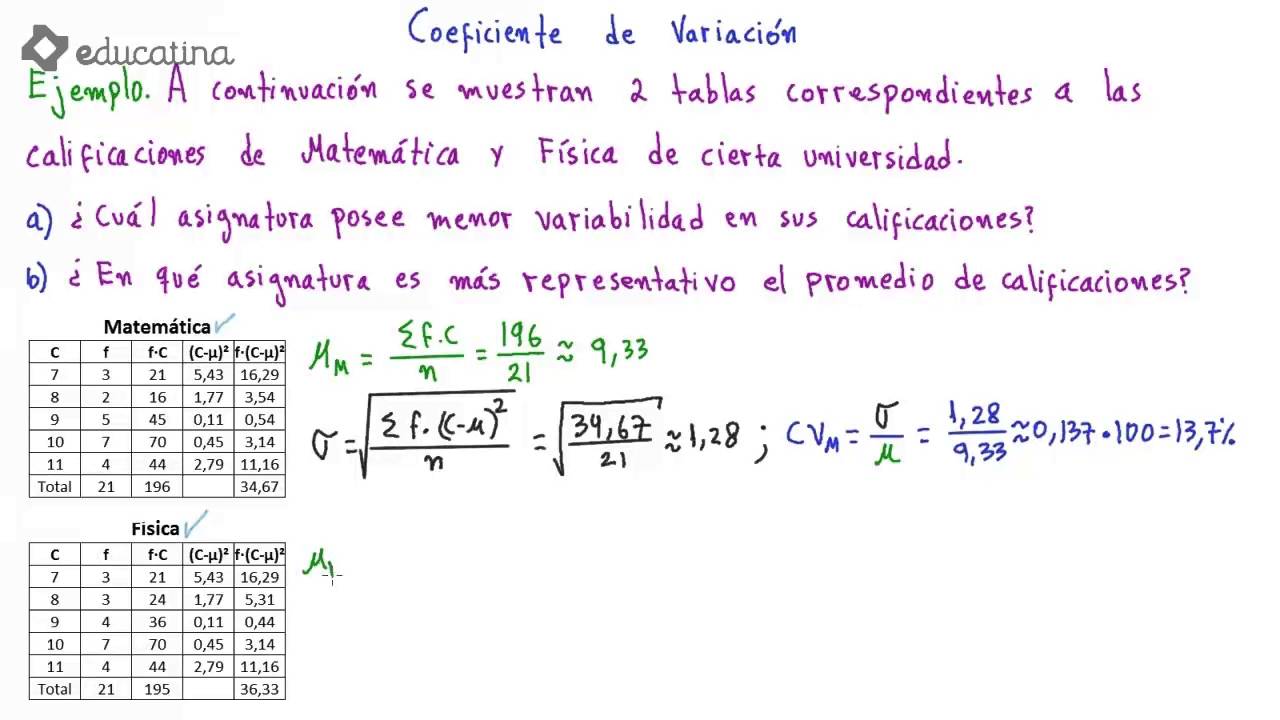 Coeficiente de Variación
educatina
Ejemplo. A continuación se muestran 2 tablas correspondientes a las
calificaciones de Matemática y Física de cierta universidad.
a) ¿Cuál asignatura posee menor variabilidad en sus calificaciones?
b) ¿En qué asignatura es más representativo el promedio de calificaciones?
Matemática
C f f·C (C-μ)² f·(C-μ)²
7 3 21 5,43 16,29
8 2 16 1,77 3,54
9 5 45 0,11 0,54
10 7 70 0,45 3,14
11 4 44 2,79 11,16
Total 21 196 34,67
μM = Σf.C/n = 196/21 ≈ 9,33
σ = √(Σf.(C-μ)²/n) = √(34,67/21) ≈ 1,28 ; CVM = σ/μ = 1,28/9,33 ≈ 0,137 • 100 = 13,7%
Física
C f f·C (C-μ)² f·(C-μ)²
7 3 21 5,43 16,29
8 3 24 1,77 5,31
9 4 36 0,11 0,44
10 7 70 0,45 3,14
11 4 44 2,79 11,16
Total 21 195 36,33
μ